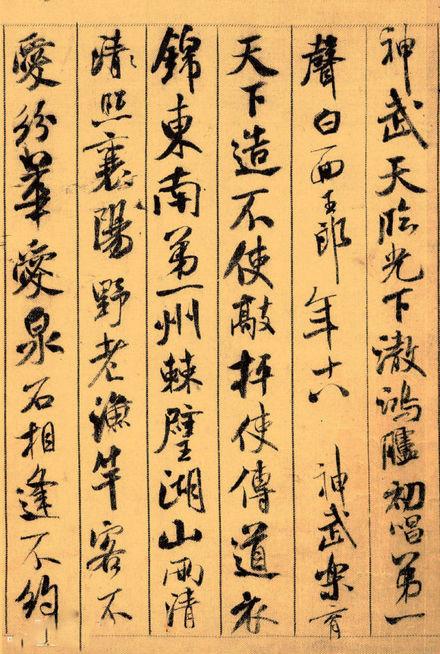 神武天臨光下澈鴻臚初唱第一
聲白面玉郎年十八神武樂育
天下造不使敲抨使傳道衣
錦東南第一州棘璧湖山兩清
清照襄陽野老漁竿客不
愛紛華愛泉石相逢不約